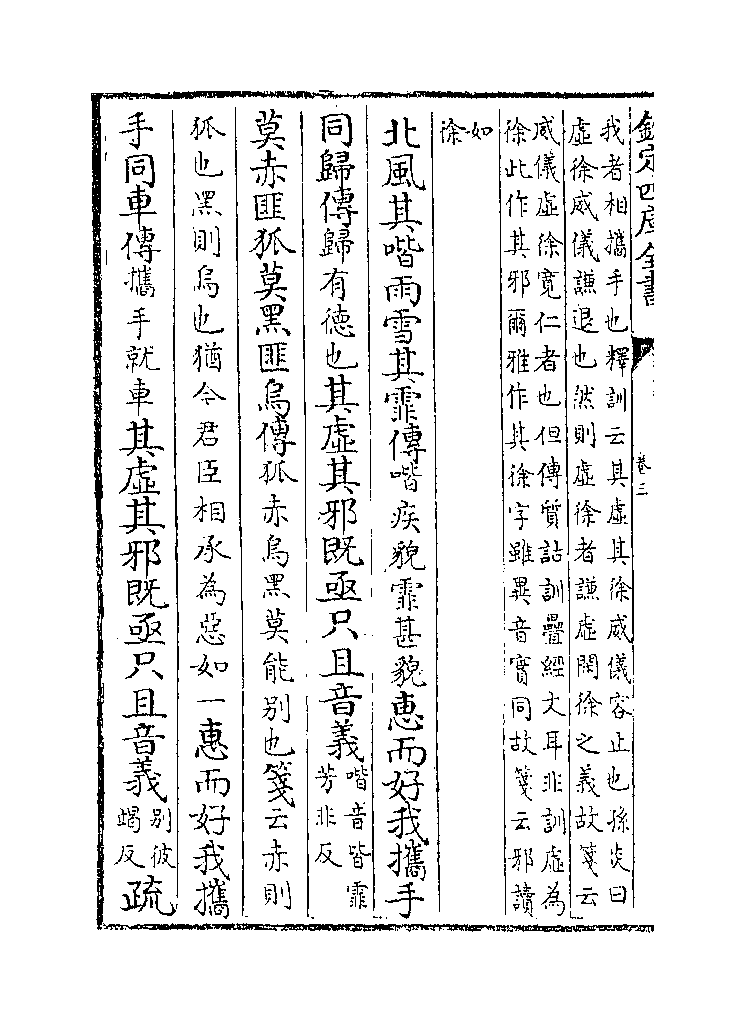 欽定四庫全書
卷三
我者相攜手也釋訓云其虛其徐威儀容止也孫炎曰
虛徐威儀謙退也然則虛徐者謙虛閑徐之義故箋云
威儀虛徐寛仁者也但傳質詁訓疊經文耳非訓虛為
徐此作其邪爾雅作其徐字雖異音實同故箋云邪讀
如
徐
北風其喈雨雪其霏傳喈疾貌霏甚貌惠而好我攜手
同歸傳歸有德也其虛其邪既亟只且音義喈音皆霏
芳非反
莫赤匪狐莫黑匪烏傳狐赤烏黑莫能别也箋云赤則
狐也黑則烏也猶今君臣相承為惡如一惠而好我攜
手同車傳攜手就車其虛其邪既亟只且音義别彼
竭反疏